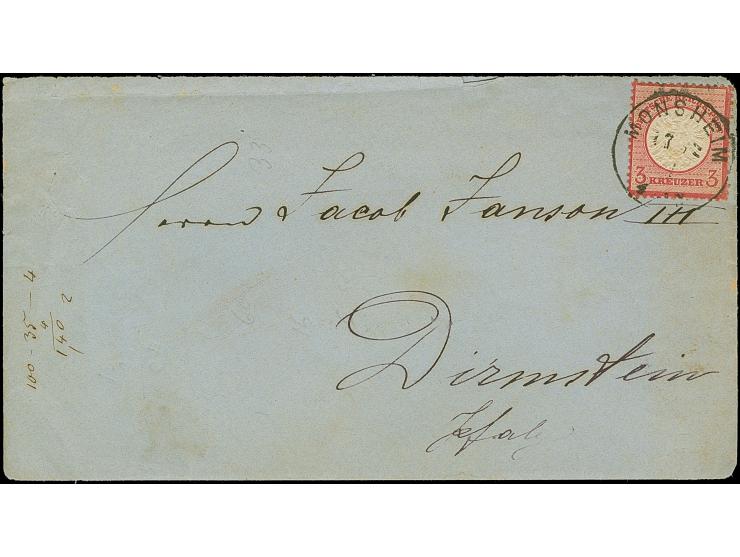 MONSHEIM
3 KREUZER 3
Herrn Jacob Janson III
Dirmstein
Pfalz
100 - 35 - 4
4
1,40 2
33